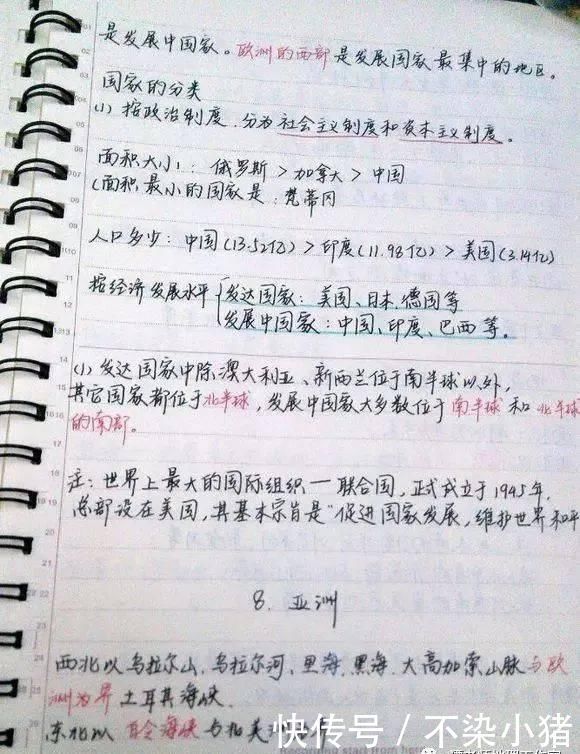 是发展中国家。欧洲的西部是发展国家最集中的地区。
国家的分类
(1) 按政治制度,分为社会主义制度和资本主义制度。
面积大小:俄罗斯>加拿大>中国
(面积最小的国家是:梵蒂冈
人口多少:中国(13.52亿)>印度(11.98亿)>美国(3.14亿)
按经济发展水平 发达国家:美国、日本、德国等
发展中国家:中国、印度、巴西等.
(1) 发达国家中除澳大利亚、新西兰位于南半球以外,
其它国家都位于北半球,发展中国家大多数位于南半球和北半球
的南部。
注:世界上最大的国际组织—联合国,正式成立于1945年,
总部设在美国,其基本宗旨是"促进国家发展,维护世界和平
8. 亚洲
西北以乌拉尔山、乌拉尔河、里海、黑海、大高加索山脉与欧
洲为界 土耳其海峡.
东北以白令海峡与北美洲
快传号/不染小猪